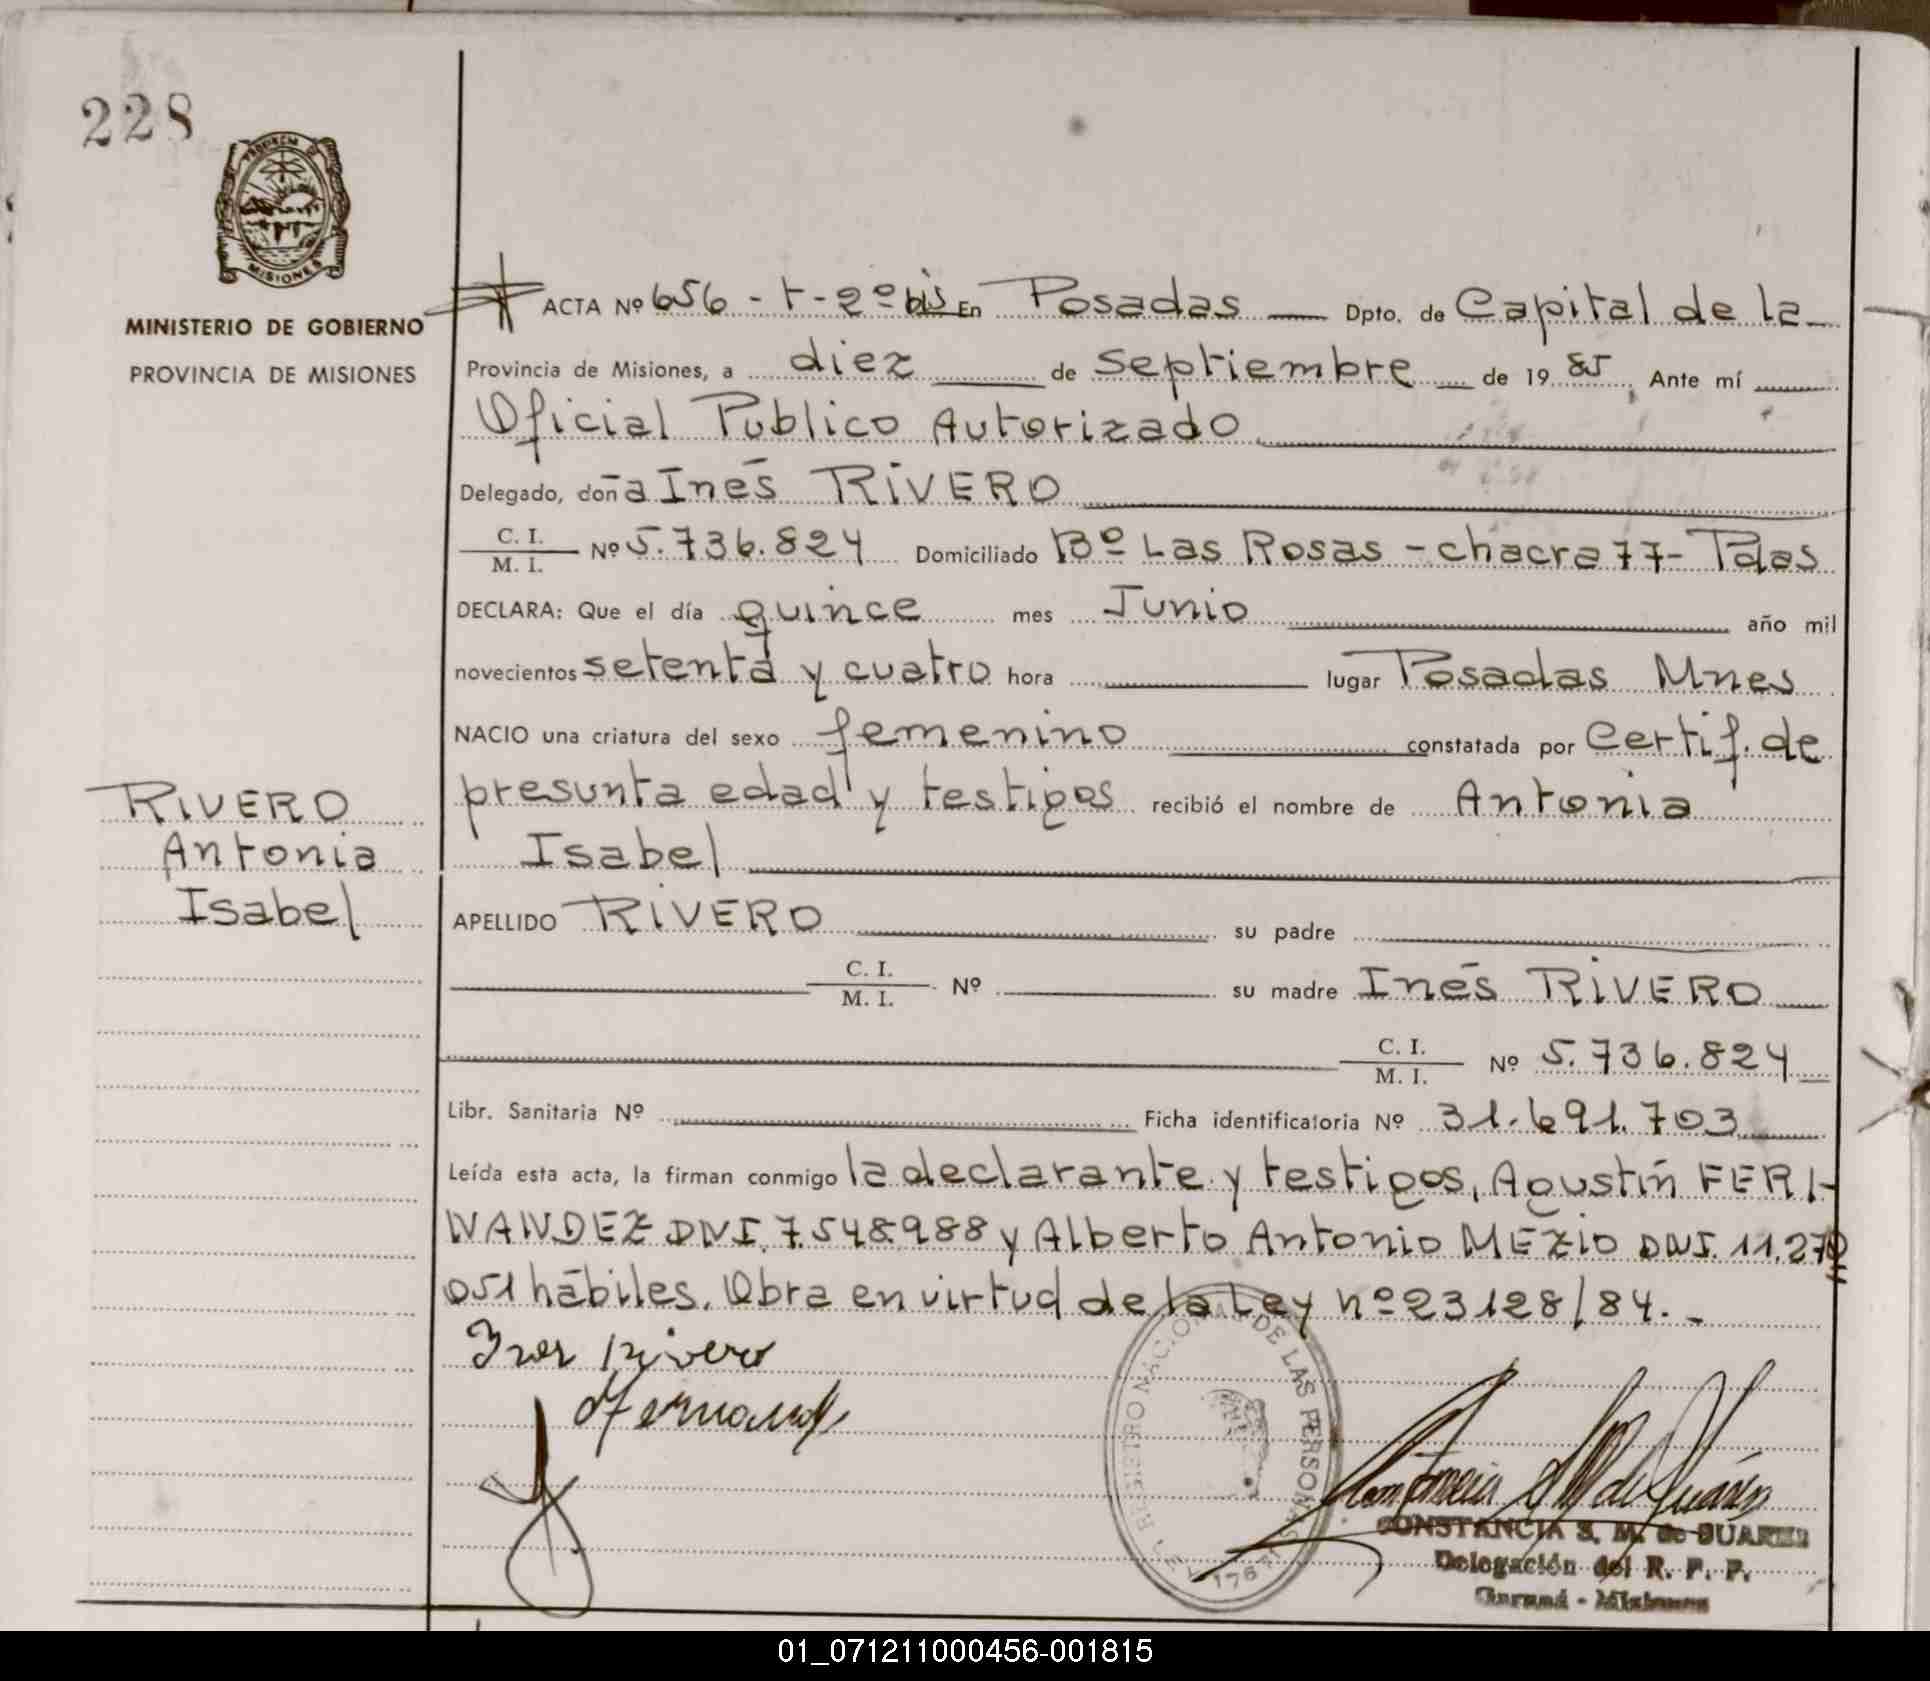 228
PROVINCIA
MISIONES
MINISTERIO DE GOBIERNO
PROVINCIA DE MISIONES
ACTA Nº 656 - t - 2º bis En Posadas Dpto. de Capital de la
Provincia de Misiones, a diez de Septiembre de 19 85, Ante mí
Oficial Publico Autorizado
Delegado, doña Inés RIVERO
C. I.
M. I. Nº 5.736.824 Domiciliado Bº Las Rosas - chacra 77 - Pdas
DECLARA: Que el día quince mes Junio año mil
novecientos setenta y cuatro hora lugar Posadas Mnes
NACIO una criatura del sexo femenino constatada por Certif. de
presunta edad y testigos recibió el nombre de Antonia
Isabel
RIVERO
Antonia
Isabel
APELLIDO RIVERO su padre
C. I.
M. I. Nº su madre Inés RIVERO
C. I.
M. I. Nº 5.736.824
Libr. Sanitaria Nº Ficha identificatoria Nº 31.691.703
Leída esta acta, la firman conmigo la declarante y testigos, Agustín FER-
NANDEZ DNI. 7.548.988 y Alberto Antonio MEZIO DNI. 11.270
051 hábiles. Obra en virtud de la Ley nº 23128/84.-
Ines Rivero
REGISTRO NACIONAL DE LAS PERSONAS
CONSTANCIA S. M. de SUAREZ
Delegación del R. P. P.
Garupá - Misiones
01_071211000456-001815